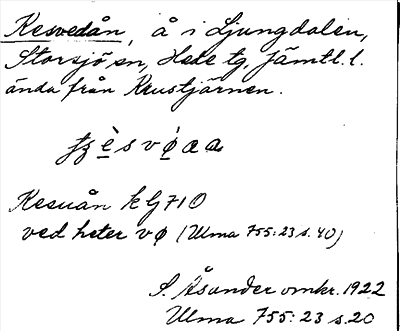 Kesvedån, å i Ljungdalen,
Storsjö sn, Hede tg, Jämtl. l.
ända från Krustjärnen.
Kesuån k G710
ved heter vø (Ulma 755:23 s. 40)
S. Åsander omkr. 1922
Ulma 755:23 s. 20